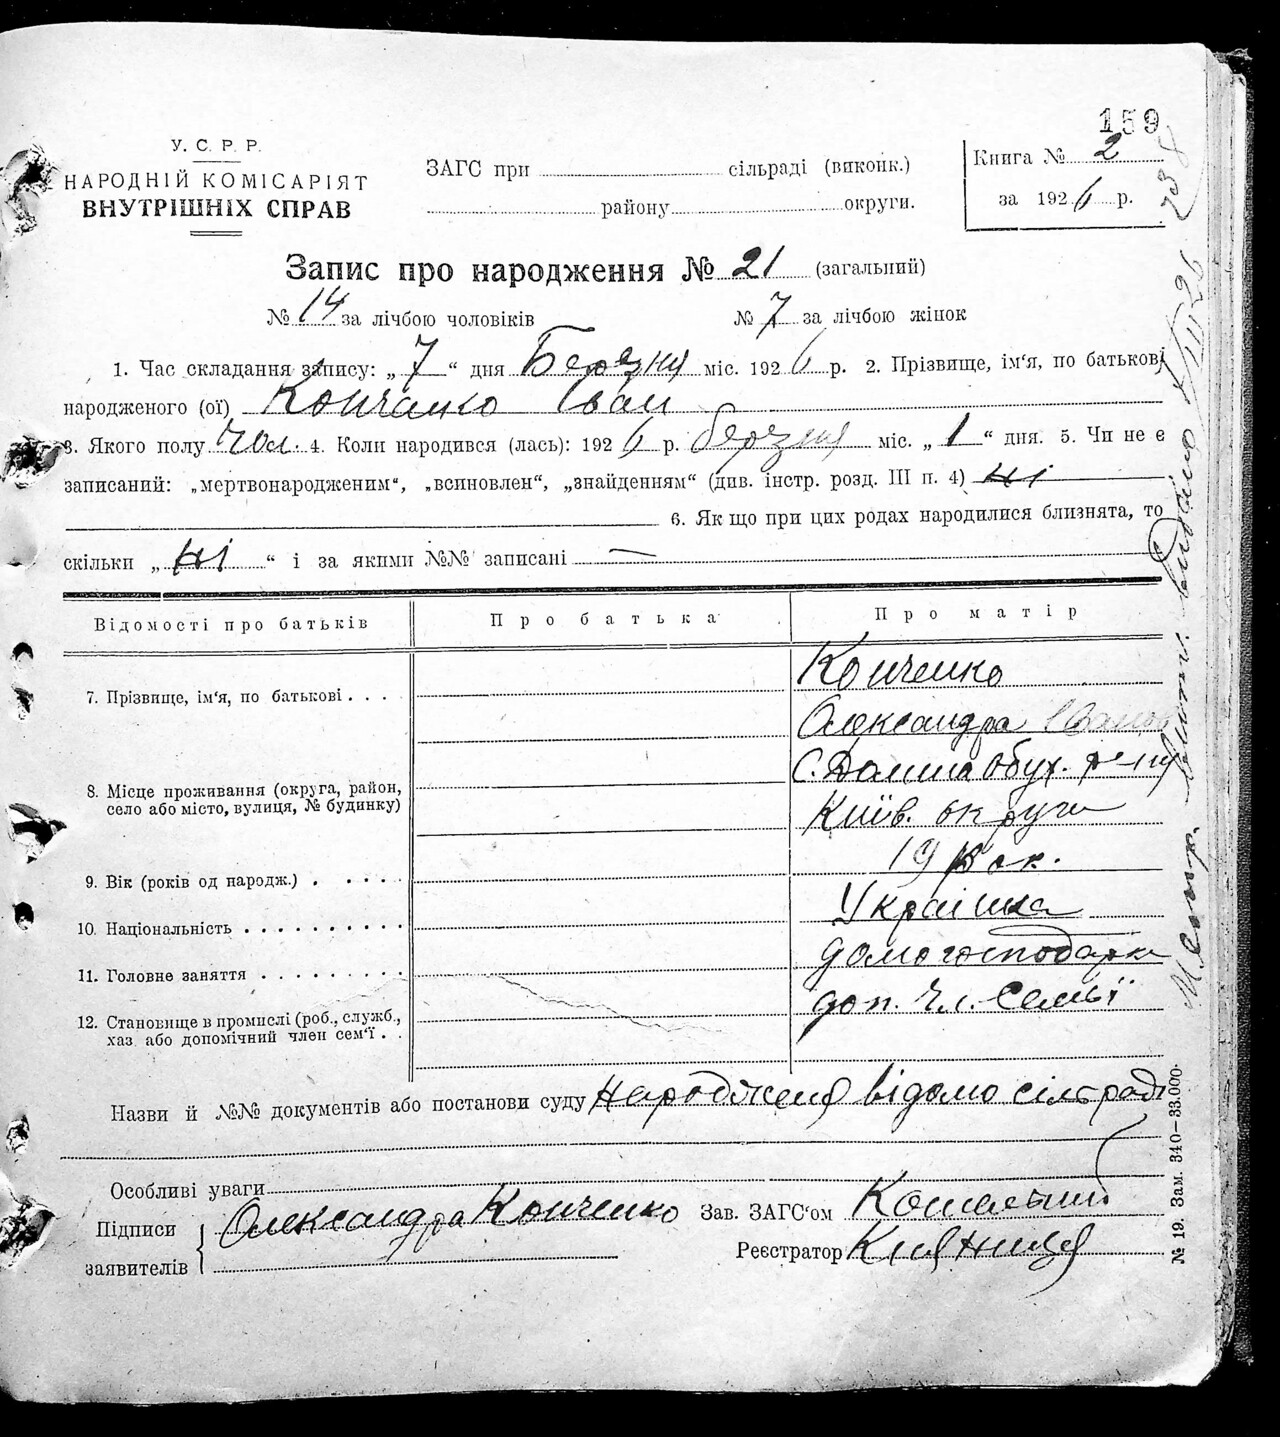 159
У. С. Р. Р.
НАРОДНІЙ КОМІСАРІЯТ
ВНУТРІШНІХ СПРАВ
ЗАГС при сільраді (виконк.)
району округи.
Книга № 2
за 1926 р.
238
Запис про народження № 21 (загальний)
№ 14 за лічбою чоловіків № 7 за лічбою жінок
1. Час складання запису: „ 7 “ дня Березня міс. 1926 р. 2. Прізвище, ім'я, по батькові
народженого (ої) Конченко Іван
3. Якого полу чол. 4. Коли народився (лась): 1926 р. березня міс. „ 1 “ дня. 5. Чи не є
записаний: „мертвонародженим“, „всиновлен“, „знайденням“ (див. інстр. розд. III п. 4) ні
6. Як що при цих родах народилися близнята, то
скільки „ ні “ і за якими №№ записані —
Відомості про батьків Про батька Про матір
7. Прізвище, ім'я, по батькові . . . Конченко
Олександра Іванов
8. Місце проживання (округа, район,
село або місто, вулиця, № будинку)
с. Долина Обух. р-ну
Київ. округи
9. Вік (років од народж.) . . . . . 19 рок.
10. Національність . . . . . . . . . . Українка
11. Головне заняття . . . . . . . . . домогосподарка
12. Становище в промислі (роб., служб.,
хаз. або допомічний член сем'ї . .
доп. чл. семьї
Назви й №№ документів або постанови суду Народженя відомо сільраді
Особливі уваги
Підписи
заявителів
Олександра Конченко
Зав. ЗАГС'ом
Реєстратор Княниця
№ 19. Зам. 340—33.000.